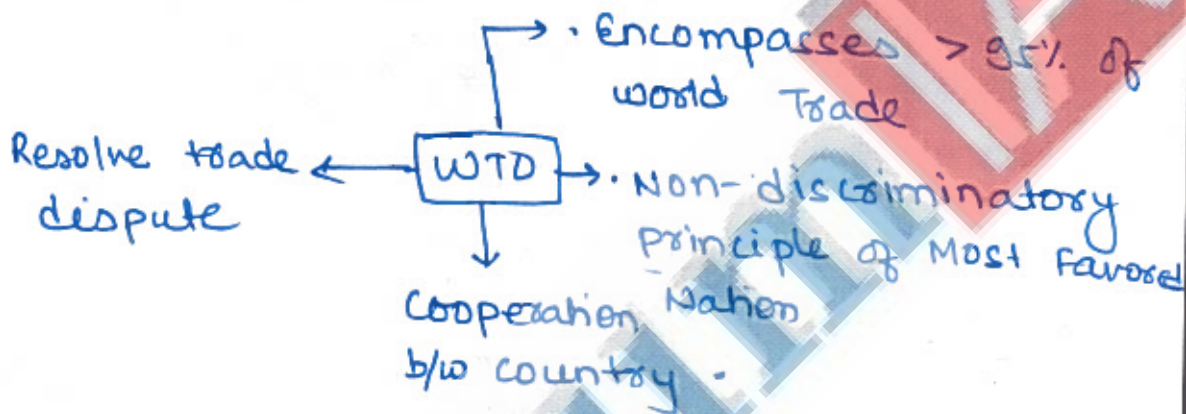 · Encompasses > 95% of
world Trade
Resolve trade
dispute
WTO
· Non-discriminatory
principle of Most Favored
Nation
Cooperation
b/w country.